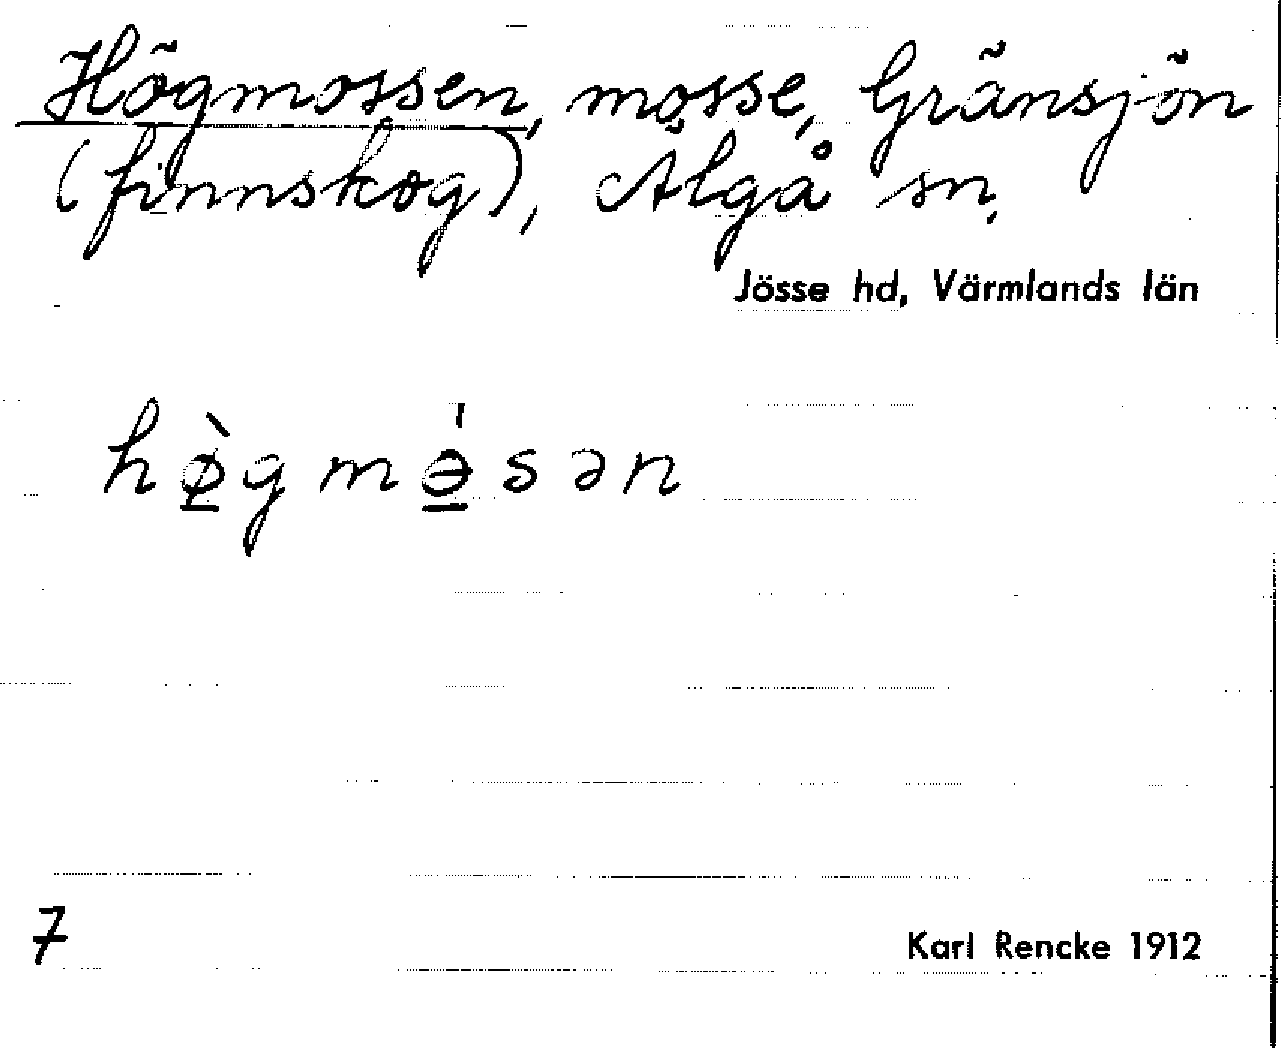 Högmossen, mosse, Gränsjön
(finnskog), Älgå sn,
Jösse hd, Värmlands län
hø̲̀gmə̲́sən
7
Karl Rencke 1912